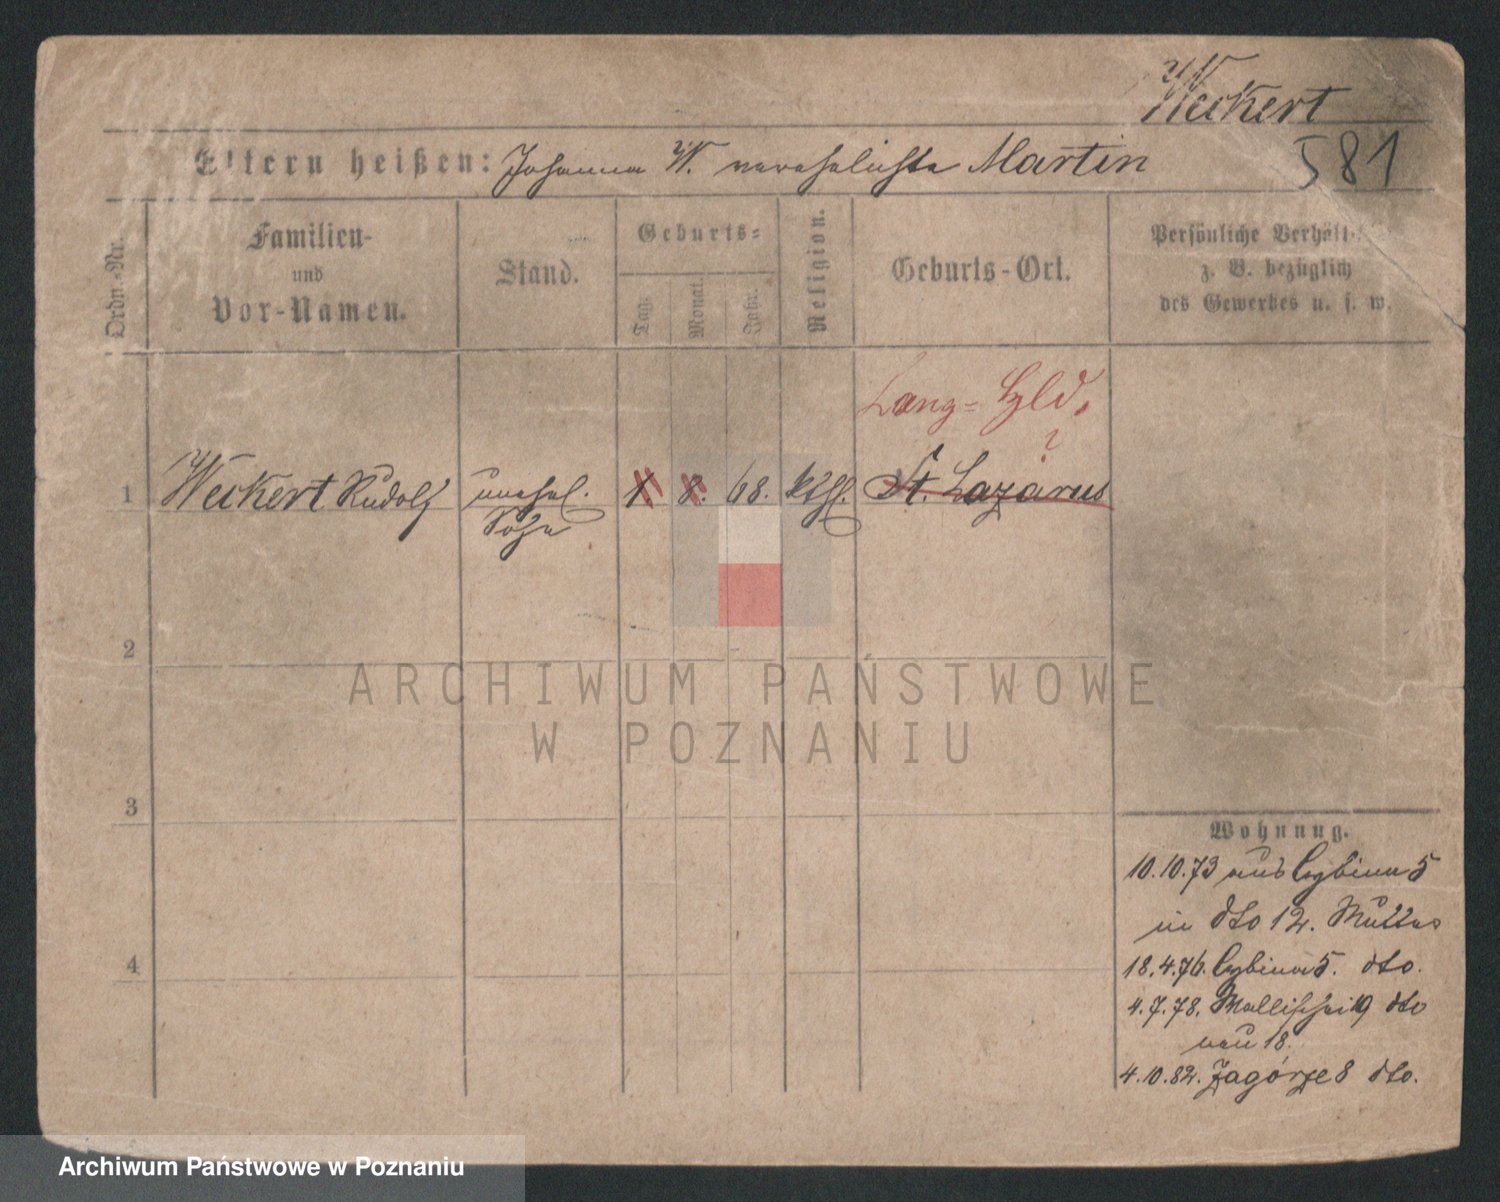 Weckert
Eltern heißen: Johanna W. verehelichte Martin
581
Ordn.-Nr.
Familien-
und
Vor-Namen.
Stand.
Geburts-
Tag.
Monat.
Jahr.
Religion.
Geburts-Ort.
Persönliche Verhält-
z. B. bezüglich
des Gewerbes u. s. w.
Lang-Gsld.
?
1 Weckert Rudolf unehel. 1. 8. 68. kthl. St. Lazarus
Sohn
2
ARCHIWUM PAŃSTWOWE
W POZNANIU
3
Wohnung.
10.10.73 aus Cybina 5
in dto 12. Mutter
4
18.4.76. Cybina 5. dto.
4.7.78. Wallischei 19 dto
neu 18.
4.10.82. Zagórze 8 dto.
Archiwum Państwowe w Poznaniu